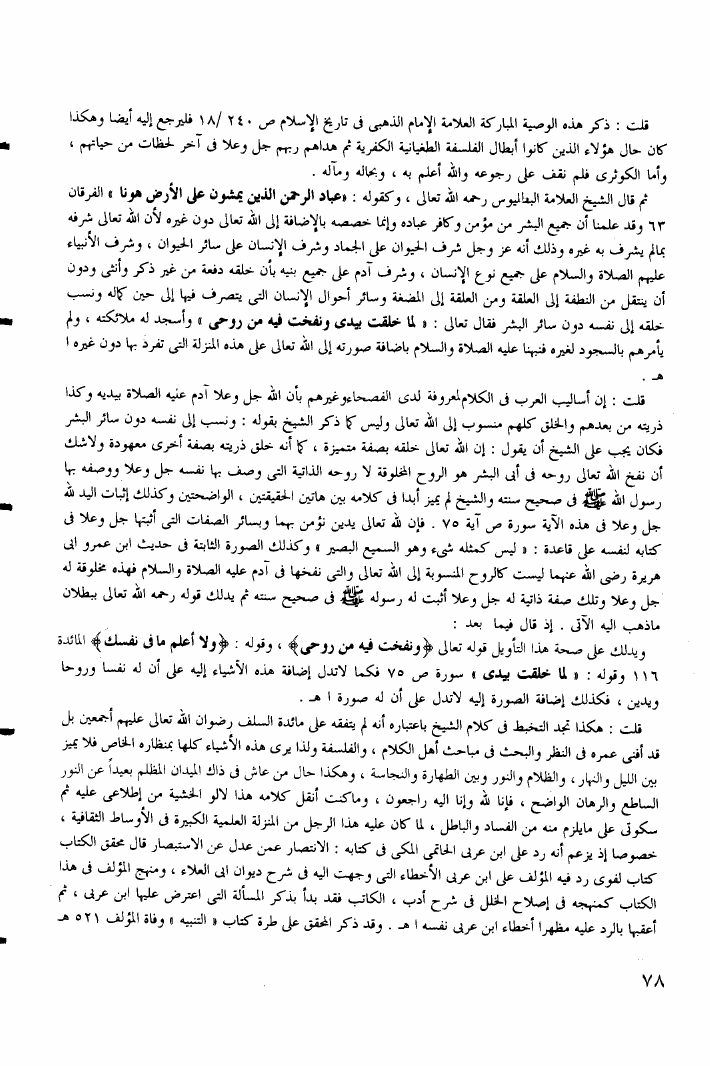 قلت : ذكر هذه الوصية المباركة العلامة الإمام الذهبى فى تاريخ الإسلام ص ٢٤٠ /١٨ فليرجع إليه أيضا وهكذا
كان حال هؤلاء الذين كانوا أبطال الفلسفة الطغيانية الكفرية ثم هداهم ربهم جل وعلا فى آخر لحظات من حياتهم ،
وأما الكوثرى فلم نقف على رجوعه والله أعلم به ، وبحاله ومآله .
ثم قال الشيخ العلامة البطليوس رحمه الله تعالى ، وكقوله : «عباد الرحمن الذين يمشون على الأرض هونا » الفرقان
٦٣ وقد علمنا أن جميع البشر من مؤمن وكافر عباده وإنما خصصه بالإضافة إلى الله تعالى دون غيره لأن الله تعالى شرفه
بمالم يشرف به غيره وذلك أنه عز وجل شرف الحيوان على الجماد وشرف الإنسان على سائر الحيوان ، وشرف الأنبياء
عليهم الصلاة والسلام على جميع نوع الإنسان ، وشرف آدم على جميع بنيه بأن خلقه دفعة من غير ذكر وأنثى ودون
أن ينتقل من النطفة إلى العلقة ومن العلقة إلى المضغة وسائر أحوال الإنسان التى يتصرف فيها إلى حين كماله ونسب
خلقه إلى نفسه دون سائر البشر فقال تعالى : « لما خلقت بيدى ونفخت فيه من روحى » وأسجد له ملائكته ، ولم
يأمرهم بالسجود لغيره فنبهنا عليه الصلاة والسلام باضافة صورته إلى الله تعالى على هذه المنزلة التى تفرد بها دون غيره ا
هـ .
قلت : إن أساليب العرب فى الكلام لمعروفة لدى الفصحاء وغيرهم بأن الله جل وعلا آدم عليه الصلاة بيديه وكذا
ذريته من بعدهم والخلق كلهم منسوب إلى الله تعالى وليس كما ذكر الشيخ بقوله : ونسب إلى نفسه دون سائر البشر
فكان يجب على الشيخ أن يقول : إن الله تعالى خلقه بصفة متميزة ، كما أنه خلق ذريته بصفة أخرى معهودة ولاشك
أن نفخ الله تعالى روحه فى أبى البشر هو الروح المخلوقة لا روحه الذاتية التى وصف بها نفسه جل وعلا ووصفه بها
رسول الله ﷺ فى صحيح سنته والشيخ لم يميز أبدا فى كلامه بين هاتين الحقيقتين ، الواضحتين وكذلك إثبات اليد لله
جل وعلا فى هذه الآية سورة ص آية ٧٥ . فإن لله تعالى يدين نؤمن بهما وبسائر الصفات التى أثبتها جل وعلا فى
كتابه لنفسه على قاعدة : « ليس كمثله شىء وهو السميع البصير » وكذلك الصورة الثابتة فى حديث ابن عمرو ابى
هريرة رضى الله عنهما ليست كالروح المنسوبة إلى الله تعالى والتى نفخها فى آدم عليه الصلاة والسلام فهذه مخلوقة له
جل وعلا وتلك صفة ذاتية له جل وعلا أثبت له رسوله ﷺ فى صحيح سنته ثم يدلك قوله رحمه الله تعالى ببطلان
ماذهب اليه الآتى . إذ قال فيما بعد :
ويدلك على صحة هذا التأويل قوله تعالى ﴿ونفخت فيه من روحى﴾ ، وقوله : ﴿ولا أعلم ما فى نفسك﴾ المائدة
١١٦ وقوله : « لما خلقت بيدى » سورة ص ٧٥ فكما لاتدل إضافة هذه الأشياء إليه على أن له نفسا وروحا
ويدين ، فكذلك إضافة الصورة إليه لاتدل على أن له صورة ا هـ .
قلت : هكذا تجد التخبط فى كلام الشيخ باعتباره أنه لم يتفقه على مائدة السلف رضوان الله تعالى عليهم أجمعين بل
قد أفنى عمره فى النظر والبحث فى مباحث أهل الكلام ، والفلسفة ولذا يرى هذه الأشياء كلها بمنظاره الخاص فلا يميز
بين الليل والنهار ، والظلام والنور وبين الطهارة والنجاسة ، وهكذا حال من عاش فى ذاك الميدان المظلم بعيداً عن النور
الساطع والرهان الواضح ، فإنا لله وإنا اليه راجعون ، وماكنت أنقل كلامه هذا لالو الخشية من إطلاعى عليه ثم
سكوتى على مايلزم منه من الفساد والباطل ، لما كان عليه هذا الرجل من المنزلة العلمية الكبيرة فى الأوساط الثقافية ،
خصوصا إذ يزعم أنه رد على ابن عربى الحاتمى المكى فى كتابه : الانتصار عمن عدل عن الاستبصار قال محقق الكتاب
كتاب لغوى رد فيه المؤلف على ابن عربى الأخطاء التى وجهت اليه فى شرح ديوان ابى العلاء ، ومنهج المؤلف فى هذا
الكتاب كمنهجه فى إصلاح الخلل فى شرح أدب ، الكاتب فقد بدأ بذكر المسألة التى اعترض عليها ابن عربى ، ثم
أعقبها بالرد عليه مظهرا أخطاء ابن عربى نفسه ا هـ . وقد ذكر المحقق على طرة كتاب « التنبيه » وفاة المؤلف ٥٢١ هـ
٧٨